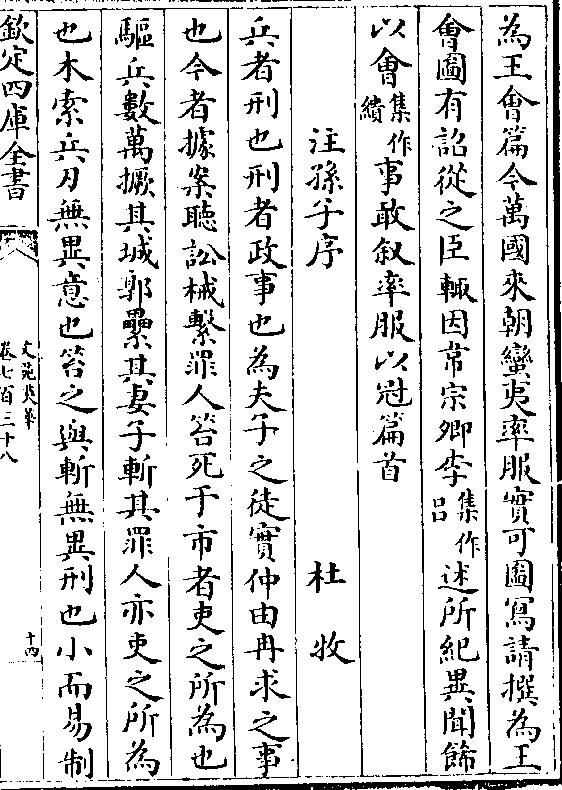 為王會篇今萬國來朝蠻夷率服實可圖寫請撰為王
會圖有詔從之臣輒因常宗卿李集作呂述所紀異聞飾
以會集作繢事敢叙率服以冠篇首
注孫子序 杜牧
兵者刑也刑者政事也為夫子之徒實仲由冉求之事
也今者據案聽訟械繫罪人笞死于市者吏之所為也
驅兵數萬撅其城郭纍其妻子斬其罪人亦吏之所為
也木索兵刃無異意也笞之與斬無異刑也小而易制
欽定四庫全書
文苑英華
卷七百三十八
十四